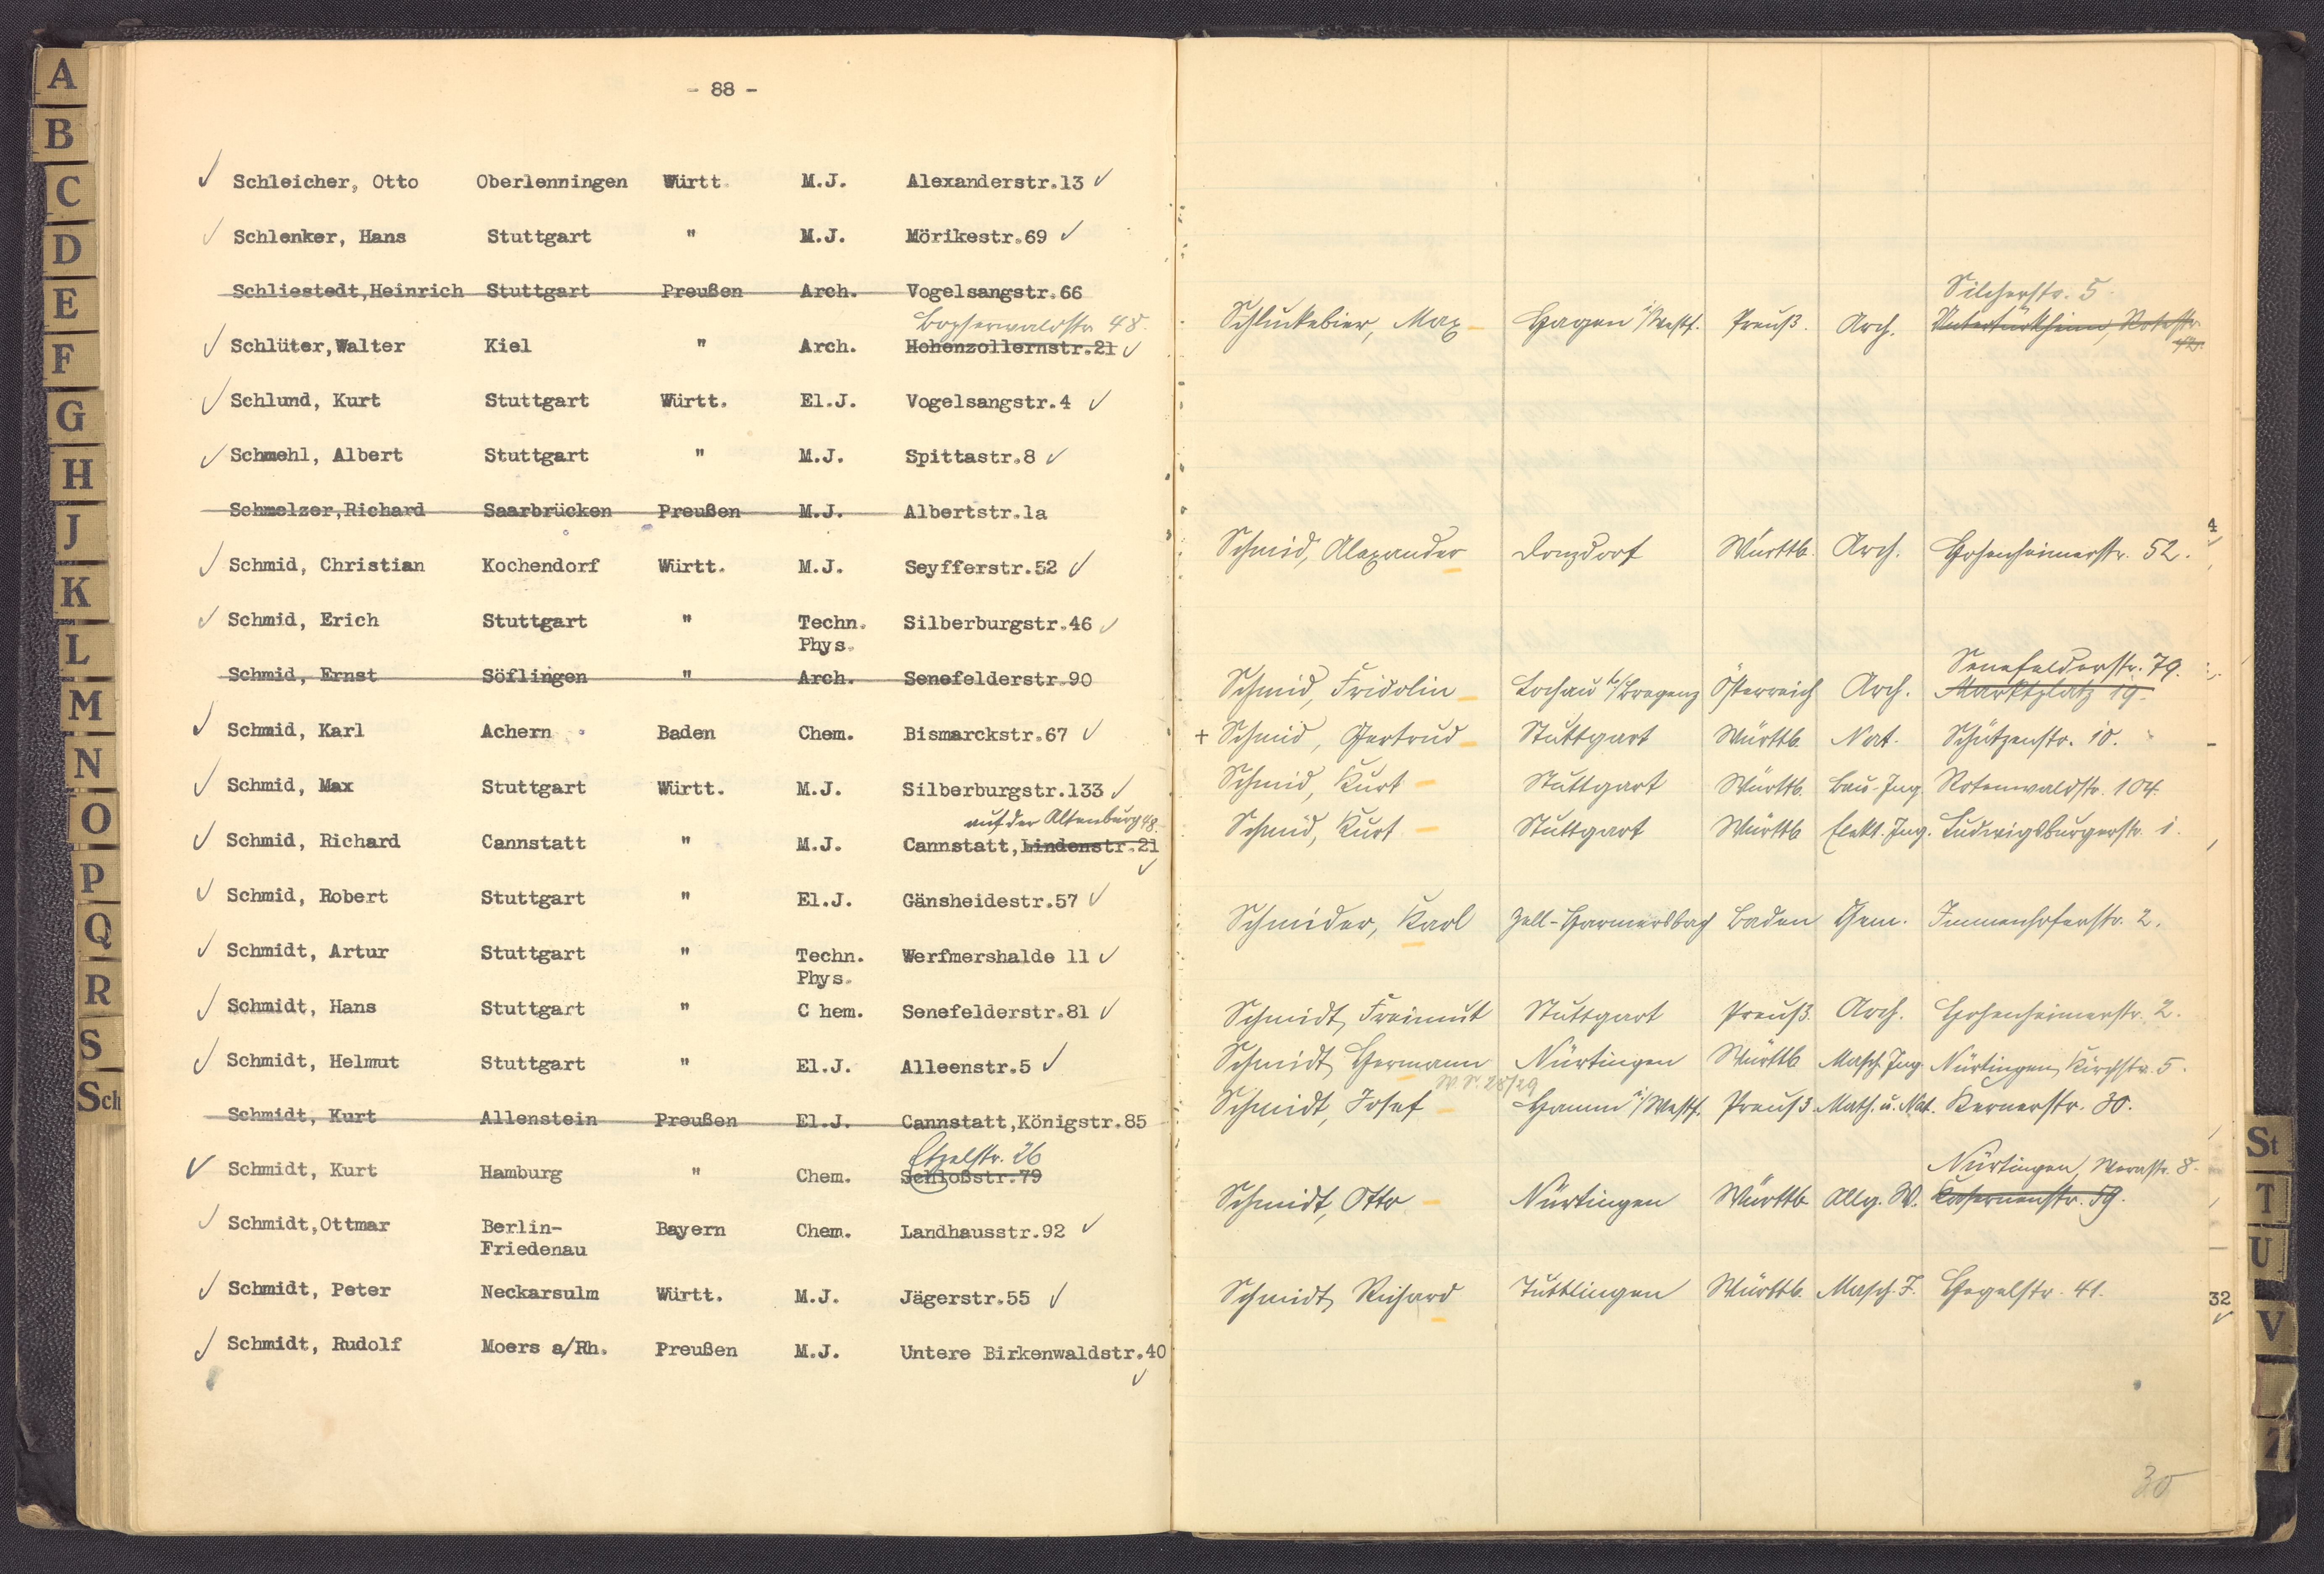 - 88 -
Schleicher, Otto Oberlenningen Württ. M.J. Alexanderstr.13
Schlenker, Hans Stuttgart " M.J. Mörikestr.69
Schliestedt,Heinrich Stuttgart Preußen Arch. Vogelsangstr.66
Bopserwaldstr 48.
Schlüter,Walter Kiel " Arch. Hohenzollernstr.21
Schlund, Kurt Stuttgart Württ. El.J. Vogelsangstr.4
Schmehl, Albert Stuttgart " M.J. Spittastr.8
Schmelzer,Richard Saarbrücken Preußen M.J. Albertstr.1a
Schmid, Christian Kochendorf Württ. M.J. Seyfferstr.52
Schmid, Erich Stuttgart " Techn. Silberburgstr.46
Phys.
Schmid, Ernst Söflingen " Arch. Senefelderstr.90
Schmid, Karl Achern Baden Chem. Bismarckstr.67
Schmid, Max Stuttgart Württ. M.J. Silberburgstr.133
auf der Altenburg 48.
Schmid, Richard Cannstatt " M.J. Cannstatt,Lindenstr.21
Schmid, Robert Stuttgart " El.J. Gänsheidestr.57
Schmidt, Artur Stuttgart " Techn. Werfmershalde 11
Phys.
Schmidt, Hans Stuttgart " C hem. Senefelderstr.81
Schmidt, Helmut Stuttgart " El.J. Alleenstr.5
Schmidt, Kurt Allenstein Preußen El.J. Cannstatt,Königstr.85
Etzelstr. 26
Schmidt, Kurt Hamburg " Chem. Schloßstr.79
Schmidt,Ottmar Berlin- Bayern Chem. Landhausstr.92
Friedenau
Schmidt, Peter Neckarsulm Württ. M.J. Jägerstr.55
Schmidt, Rudolf Moers a/Rh. Preußen M.J. Untere Birkenwaldstr.40
Silcherstr. 5.
Schluckebier, Max Hagen i/Westf. Preuß. Arch. Untertürkheim, Rotestr.
42.
Schmid, Alexander Donzdorf Württb. Arch. Hohenheimerstr. 52.
Senefelderstr. 79.
Schmid, Fridolin Lochau b/Bregenz Österreich Arch. Marktplatz 19.
+ Schmid, Gertrud Stuttgart Württb. Nat. Schützenstr. 10.
Schmid, Kurt Stuttgart Württb. Bau-Ing. Rotenwaldstr. 104.
Schmid, Kurt Stuttgart Württb Elekt. Ing. Ludwigsburgerstr. 1.
Schmider, Karl Zell-Harmersbach Baden Chem. Immenhoferstr. 2.
Schmidt, Freimut Stuttgart Preuß. Arch. Hohenheimerstr. 2.
Schmidt, Hermann Nürtingen Württb Masch. Ing Nürtingen, Kirchstr. 5.
W.S. 28/29
Schmidt, Josef Hamm i/Westf. Preuß Math. u. Nat. Kernerstr. 30.
Nürtingen, Werastr. 8.
Schmidt, Otto Nürtingen Württb Allg. W. Kasernenstr. 59.
Schmidt, Richard Tuttlingen Württb. Masch. I. Hegelstr. 41.
30
4
32
A
B
C
D
E
F
G
H
J
K
L
M
N
O
P
Q
R
S
Sch
St
T
U
V
Z